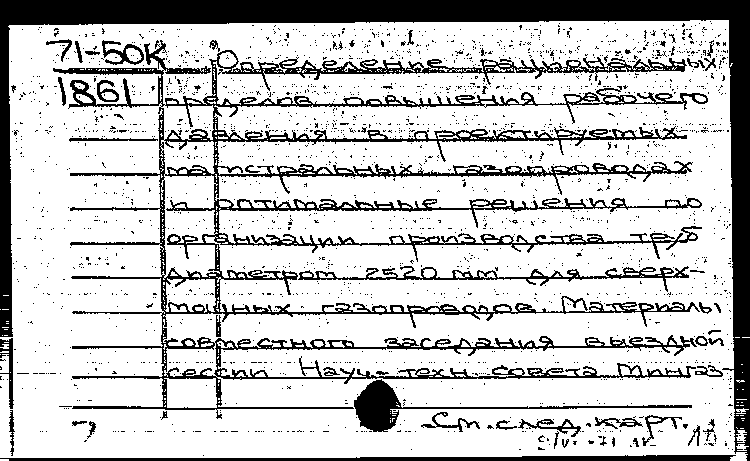 71-50К
1861
Определение рациональных
пределов повышения рабочего
давления в проектируемых
магистральных газопроводах
и оптимальные решения по
организации производства труб
диаметром 2520 мм для сверх-
мощных газопроводов. Материалы
совместного заседания выездной
сессии Науч.-техн. совета Мингаз-
См. след. карт.